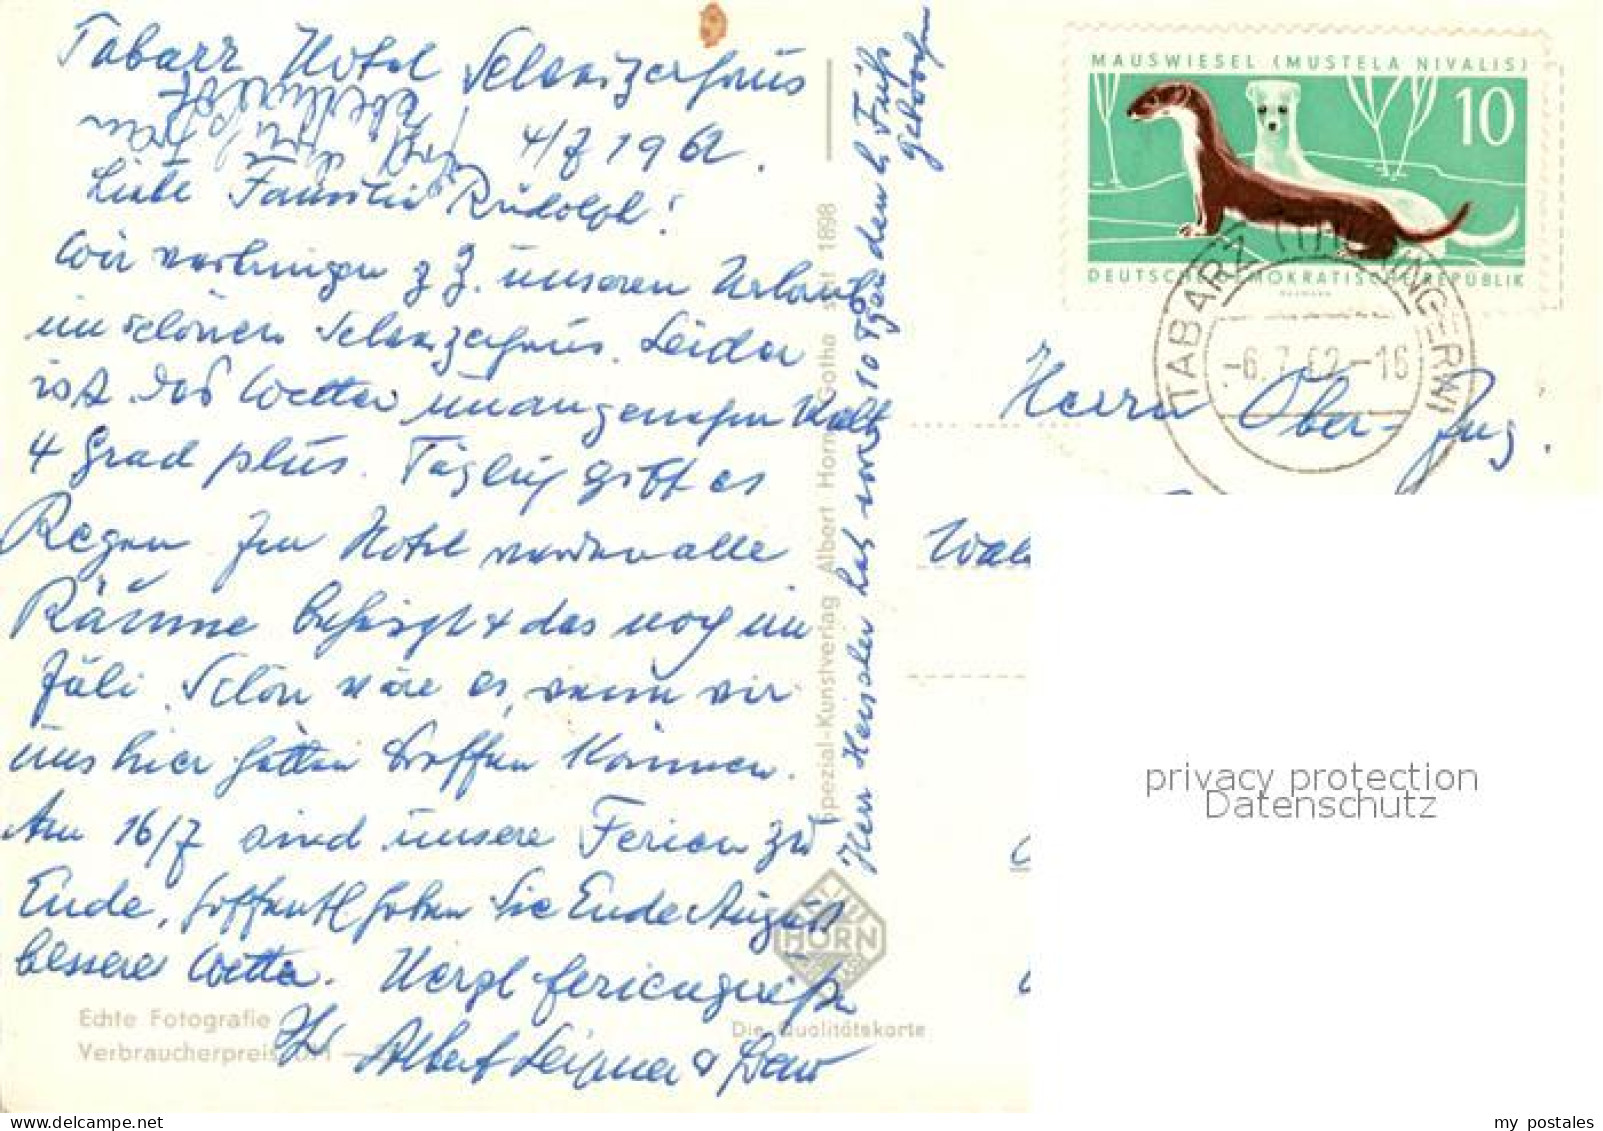 Tabarz Hotel Schweizerhaus
4/7 1962.
Liebe Familie Rudolph!
Wir verbringen z Z. unseren Urlaub
im schönen Schweizerhaus. Leider
ist das Wetter unangenehm kalt
4 Grad plus. Täglich gibt es
Regen Im Hotel werden alle
Räume beheizt + das noch im
Juli. Schön wäre es, wenn wir
uns hier hätten treffen können.
Am 16/7 sind unsere Ferien zu
Ende, hoffentl haben Sie Ende August
besseres Wetter. Herzl Feriengrüße
Ihr Albert
Herr Henschler hat vor 10 Tgen den l. Fuß
gebrochen
Spezial-Kunstverlag Albert Horn Gotha seit 1898
HORN
Echte Fotografie
Verbraucherpreis
Die Qualitätskarte
MAUSWIESEL (MUSTELA NIVALIS)
10
DEUTSCHE DEMOKRATISCHE REPUBLIK
TABARZ (THÜRINGERW)
-6.7.62-16
Herrn Ober-Ing.
privacy protection
Datenschutz
my postales